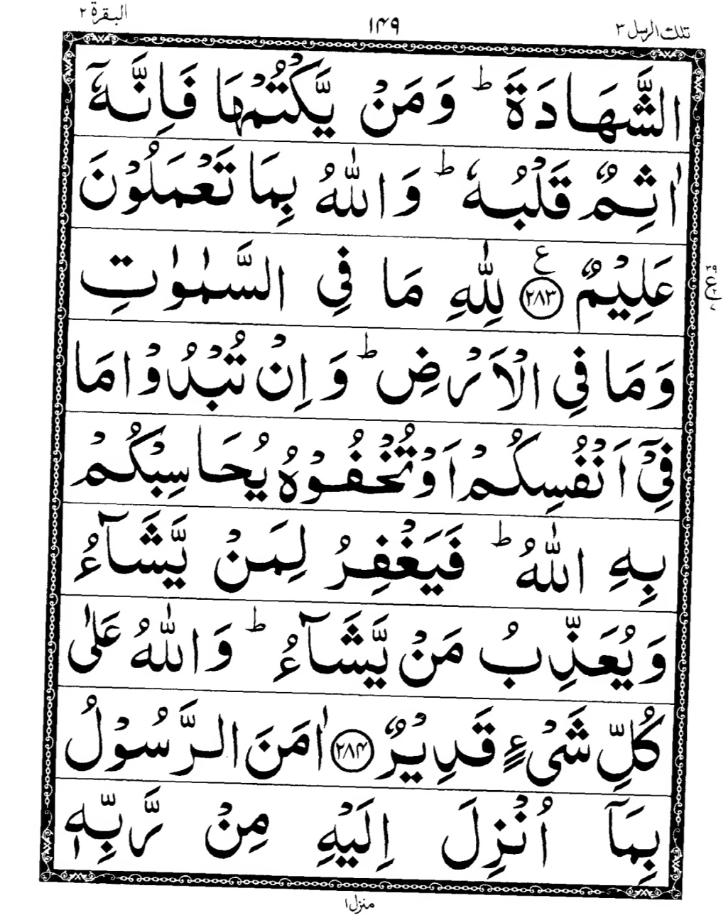 تلك الرسل ٣
١٤٩
البقرة ٢
الشَّهَادَةَ ؕ وَمَنْ يَّكْتُمْهَا فَاِنَّهٗۤ
اٰثِمٌ قَلْبُهٗ ؕ وَاللّٰهُ بِمَا تَعْمَلُوْنَ
عَلِيْمٌ ﴿٢٨٣﴾ ع لِلّٰهِ مَا فِی السَّمٰوٰتِ
وَمَا فِی الْاَرْضِ ؕ وَاِنْ تُبْدُوْا مَا
فِیْۤ اَنْفُسِكُمْ اَوْ تُخْفُوْهُ یُحَاسِبْكُمْ
بِهِ اللّٰهُ ؕ فَیَغْفِرُ لِمَنْ یَّشَآءُ
وَیُعَذِّبُ مَنْ یَّشَآءُ ؕ وَاللّٰهُ عَلٰی
كُلِّ شَیْءٍ قَدِیْرٌ ﴿٢٨٤﴾ اٰمَنَ الرَّسُوْلُ
بِمَاۤ اُنْزِلَ اِلَیْهِ مِنْ رَّبِّهٖ
منزل١